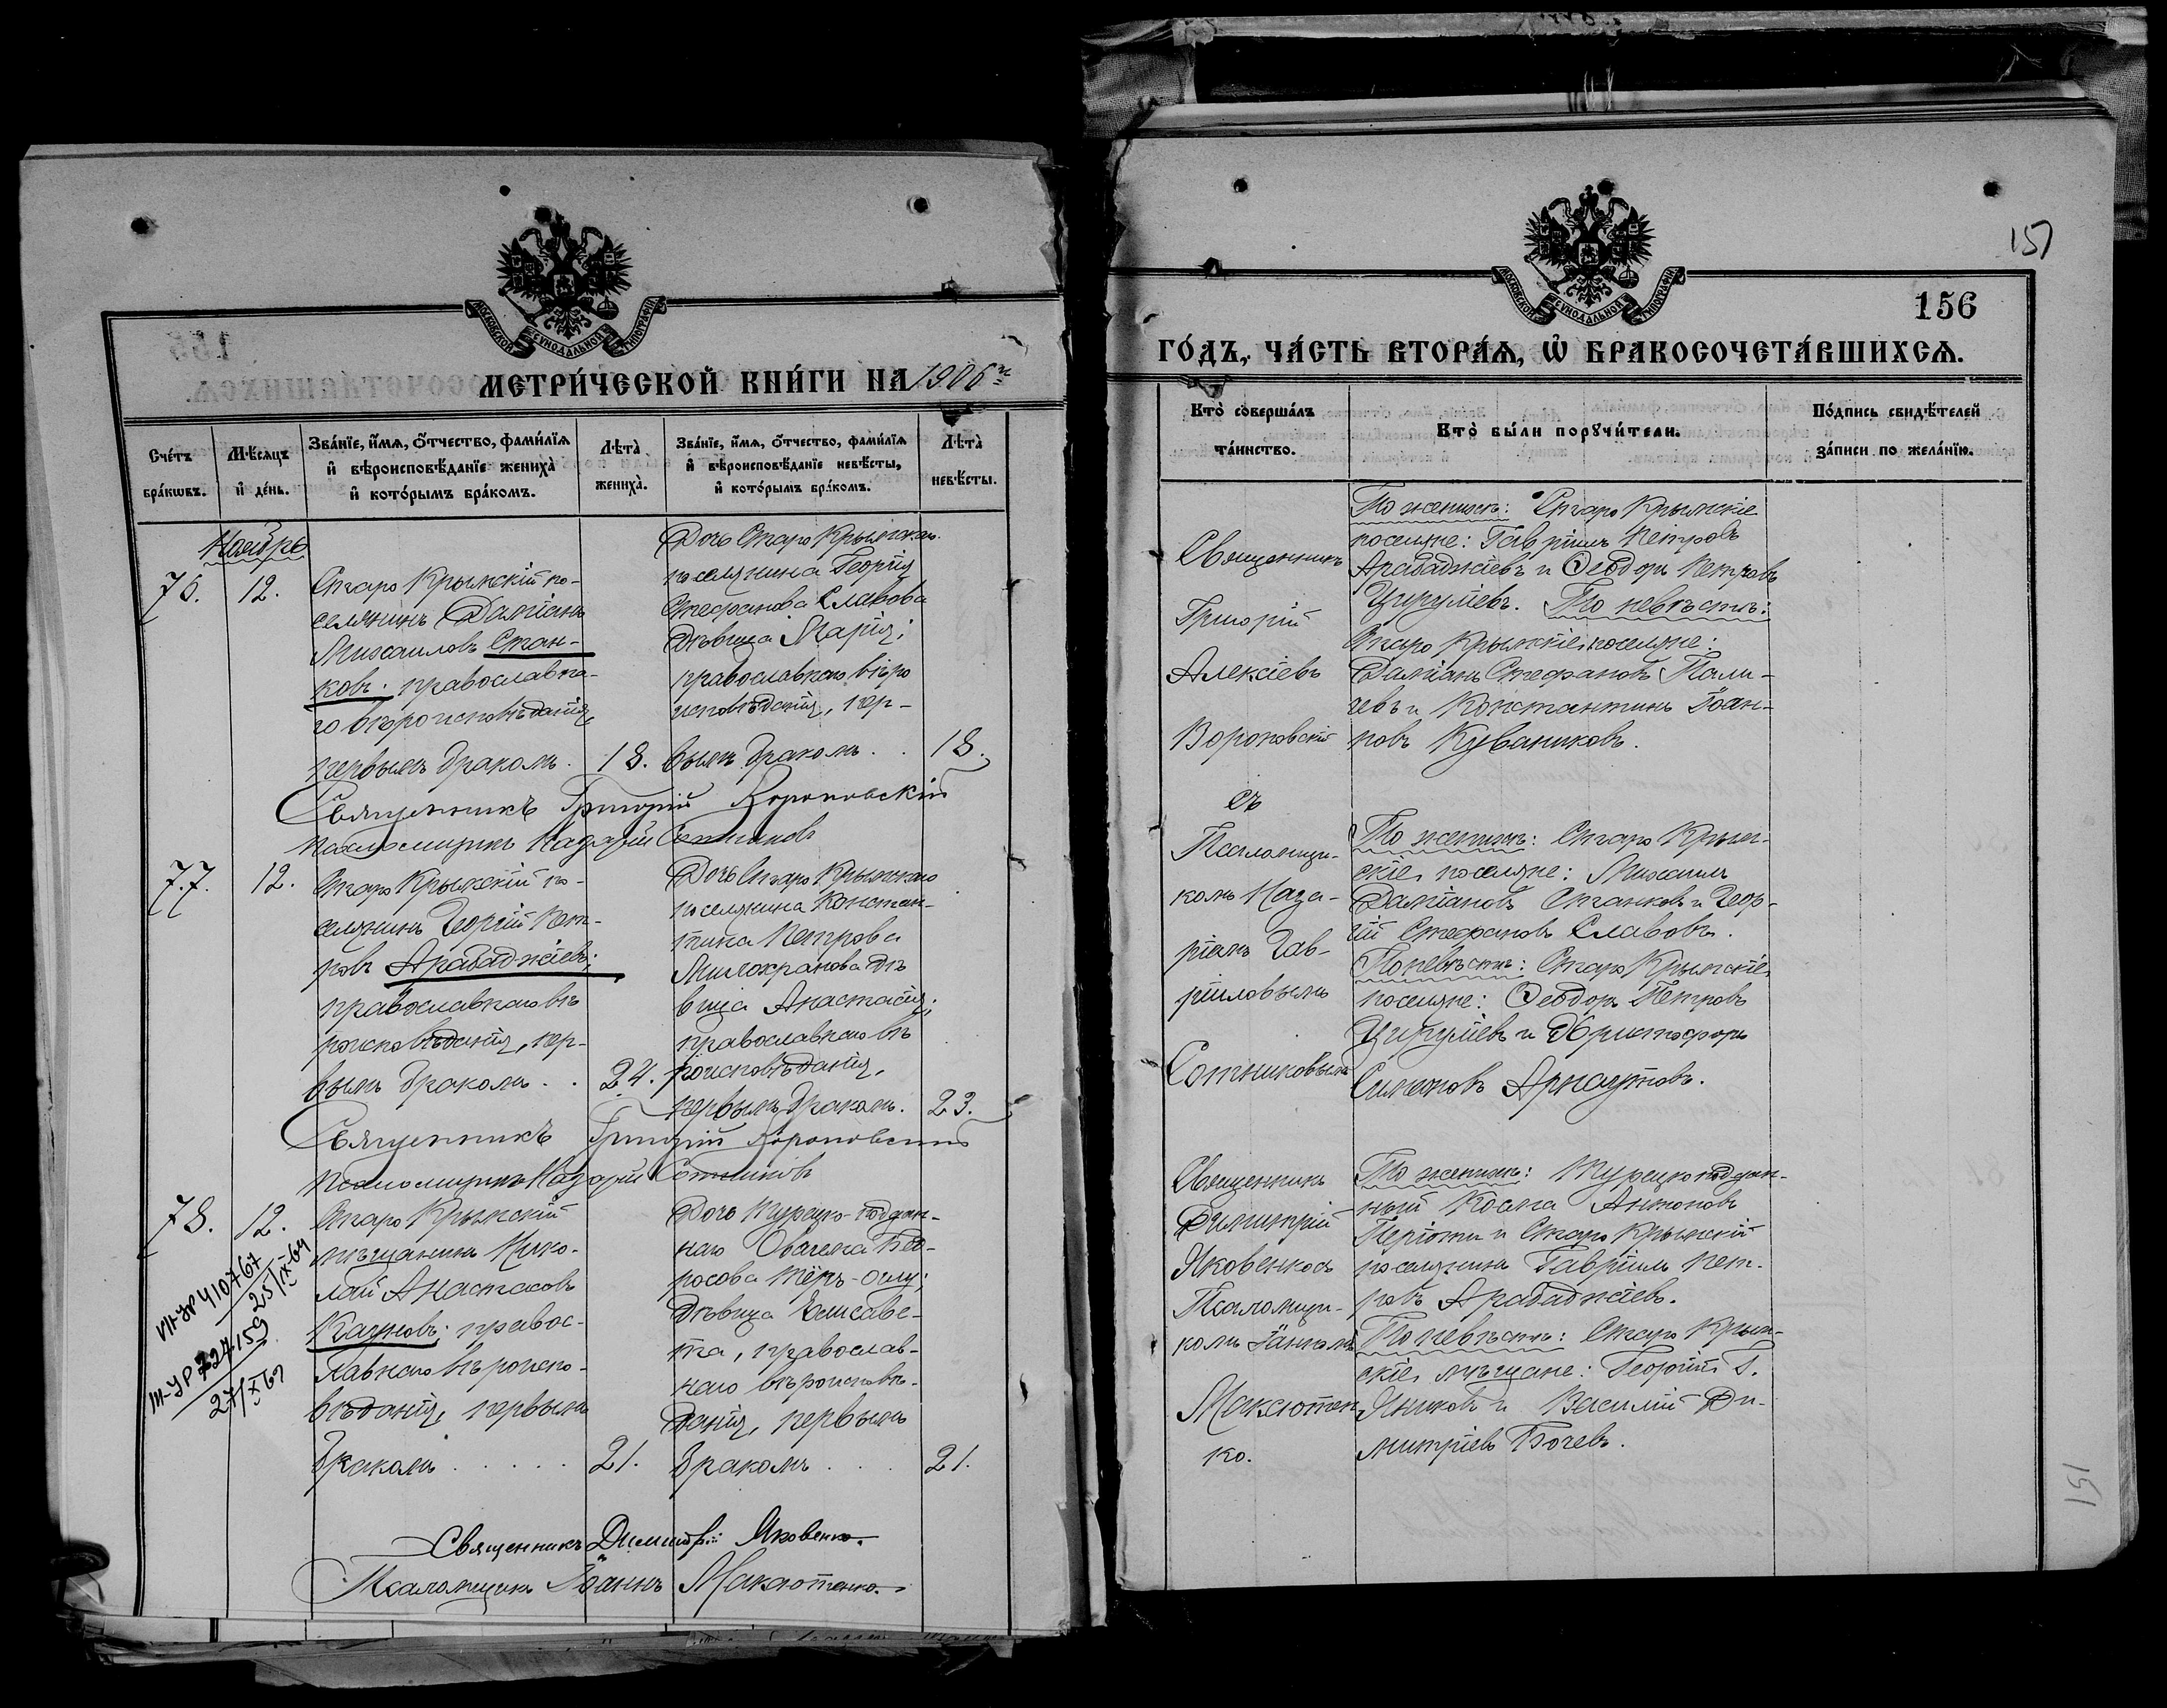 МОСКОВСКОЙ СѴНОДАЛЬНОЙ ТИПОГРАФІИ
МЕТРИ́ЧЕСКОЙ КНИ́ГИ НА 1906 г.
Сче́тъ бра́кωвъ.
Мѣ́сяцъ и҆ де́нь.
Зва́нїе, и҆́мѧ, ѻ҆́тчество, фами́лїѧ
и҆ вѣроисповѣ́данїе жениха̀
и҆ кото́рымъ бра́комъ.
Лѣта̀ жениха̀.
Зва́нїе, и҆́мѧ, ѻ҆́тчество, фами́лїѧ
и҆ вѣроисповѣ́данїе невѣ́сты,
и҆ кото́рымъ бра́комъ.
Лѣта̀ невѣ́сты.
Ноябрь
76.
12.
Старо Крымскій по-
селянинъ Даміанъ
Михаиловъ Стан-
ковъ; православна-
го вѣроисповѣданія,
первымъ бракомъ.
18.
Дочь Старо Крымскаго
поселянина Георгія
Стефанова Славова
дѣвица Марія;
православнаго вѣро
исповѣданія, пер-
вымъ бракомъ. .
18.
Священникъ Григорій Вороновскій
Псаломщикъ Назарій Сотниковъ
77.
12.
Старо Крымскій по-
селянинъ Георгій Пет-
ровъ Арабаджіевъ;
православнаго вѣ
роисповѣданія, пер-
вымъ бракомъ. .
24.
Дочь Старо Крымскаго
поселянина Констан-
тина Петрова
дѣ
вица Анастасія;
православнаго вѣ
роисповѣданія,
первымъ бракомъ.
23.
Священникъ Григорій Вороновскій
Псаломщикъ Назарій Сотниковъ
78.
12.
Старо Крымскій
мѣщанинъ Нико-
лай Анастасовъ
православ-
лавнаго вѣроиспо-
вѣданія, первымъ
бракомъ . . . . .
21.
Дочь Турецко-поддан-
наго
дѣвица Елисаве-
та, православ-
наго вѣроисповѣ-
данія, первымъ
бракомъ . . .
21.
III-УР 410767
25/IX-69
III-УР 227159
27/X 69
Священникъ Димитрій Яковенко.
Псаломщикъ Іоаннъ Максютенко.
151
МОСКОВСКОЙ СѴНОДАЛЬНОЙ ТИПОГРАФІИ
156
ГО́ДЪ, ЧА́СТЬ ВТОРА́Ѧ, Ѽ БРАКОСОЧЕТА́ВШИХСѦ.
Кто̀ соверша́лъ та́инство.
Кто̀ бы́ли порꙋчи́тели.
По́дпись свидѣ́телей за́писи по жела́нїю.
Священникъ
Григорій
Алексіевъ
Вороновскій
съ
Псаломщи-
комъ Наза-
ріемъ Гав-
ріиловымъ
Сотниковымъ
По женихѣ: Старо Крымскіе
поселяне: Гавріилъ Петровъ
Арабаджіевъ и Ѳеодоръ Петровъ
Цируліевъ. По невѣстѣ:
Старо Крымскіе поселяне:
Даміанъ Стефановъ Пали-
чевъ и Константинъ Іоан-
новъ Куваниковъ.
По женихѣ: Старо Крым-
скіе поселяне: Михаилъ
Даміановъ Станковъ и Геор-
гій Стефановъ Славовъ.
По невѣстѣ: Старо Крымскіе
поселяне: Ѳеодоръ Петровъ
Цируліевъ и Христофоръ
Симеоновъ Арнаутовъ.
Священникъ
Димитрій
Яковенко съ
Псаломщи-
комъ Іоанномъ
Максютен
ко.
По женихѣ: Турецкоподдан-
ный Косма Антоновъ
и Старо Крымскій
поселянинъ Гавріилъ Пет-
ровъ Арабаджіевъ.
По невѣстѣ: Старо Крым-
скіе мѣщане: Георгій Г.
Яниковъ и Василій Ди-
митріевъ Бочевъ.
151